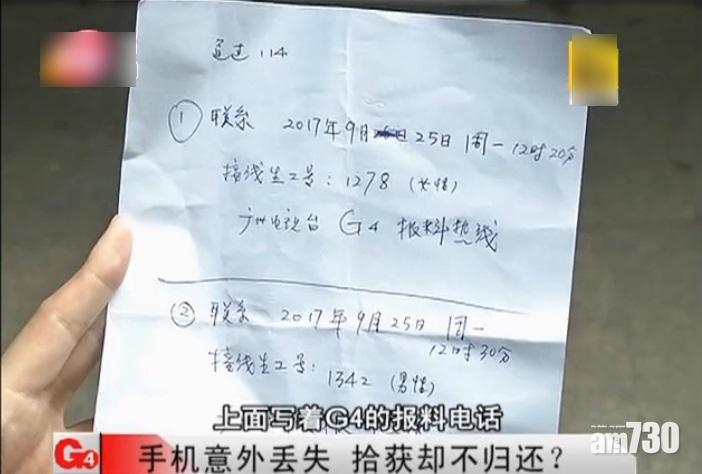 通过114
① 联系 2017年9月25日 周一 12时20分
接线生工号：1278（女性）
广州电视台 G4 报料热线
② 联系 2017年9月25日 周一
12时30分
接线生工号：1342（男性）
上面写着G4的报料电话
G4
手机意外丢失 拾获却不归还？
am730